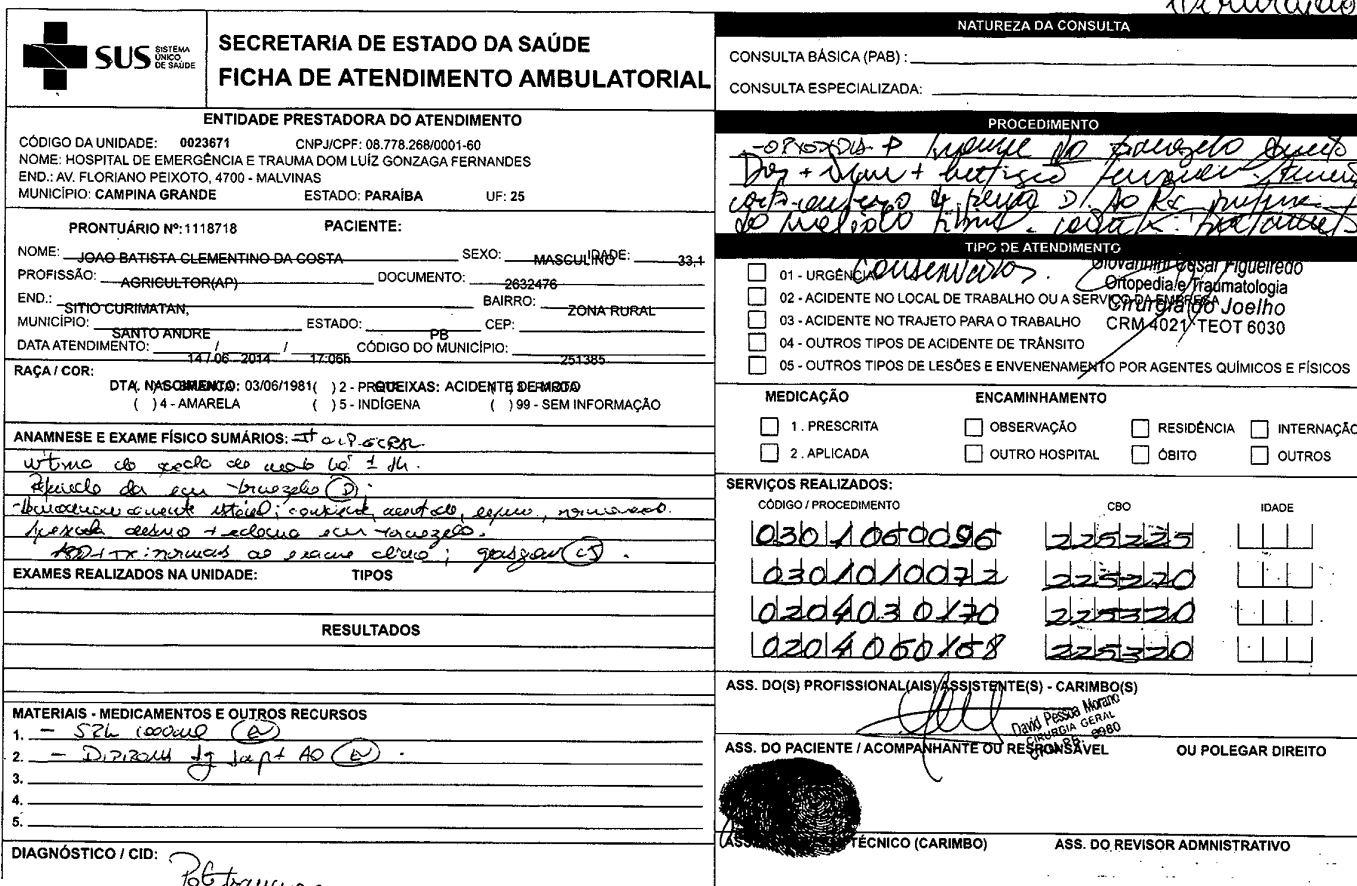 SUS SISTEMA ÚNICO DE SAÚDE
SECRETARIA DE ESTADO DA SAÚDE
FICHA DE ATENDIMENTO AMBULATORIAL
ENTIDADE PRESTADORA DO ATENDIMENTO
CÓDIGO DA UNIDADE: 0023671 CNPJ/CPF: 08.778.268/0001-60
NOME: HOSPITAL DE EMERGÊNCIA E TRAUMA DOM LUÍZ GONZAGA FERNANDES
END.: AV. FLORIANO PEIXOTO, 4700 - MALVINAS
MUNICÍPIO: CAMPINA GRANDE ESTADO: PARAÍBA UF: 25
PRONTUÁRIO Nº: 1118718 PACIENTE:
NOME: JOAO BATISTA CLEMENTINO DA COSTA SEXO: MASCULINO IDADE: 33,1
PROFISSÃO: AGRICULTOR(AP) DOCUMENTO: 2632476
END.: SITIO CURIMATAN, BAIRRO: ZONA RURAL
MUNICÍPIO: SANTO ANDRE ESTADO: PB CEP:
DATA ATENDIMENTO: 14 / 06 / 2014 17:06h CÓDIGO DO MUNICÍPIO: 251385
RAÇA / COR:
DTA. NASCIMENTO: 03/06/1981 ( ) 2 - QUEIXAS: ACIDENTE DE MOTO
( ) 4 - AMARELA ( ) 5 - INDÍGENA ( ) 99 - SEM INFORMAÇÃO
ANAMNESE E EXAME FÍSICO SUMÁRIOS:
vítima de queda de moto há ± 1h.
da em tornozelo (D).
estável; consciente,
edema em tornozelo.
ABD + TX: normais ao exame clínico;
EXAMES REALIZADOS NA UNIDADE: TIPOS
RESULTADOS
MATERIAIS - MEDICAMENTOS E OUTROS RECURSOS
1. - SRL 1000ml EV
2. - DIPIRONA 1g 1ap + AD EV
3.
4.
5.
DIAGNÓSTICO / CID:
NATUREZA DA CONSULTA
CONSULTA BÁSICA (PAB) :
CONSULTA ESPECIALIZADA:
PROCEDIMENTO
- ORTOPEDIA - do tornozelo direito
Dor +
da perna D. Ao Rx
do maléolo
TIPO DE ATENDIMENTO
conservador.
01 - URGÊNCIA
02 - ACIDENTE NO LOCAL DE TRABALHO OU A SERVIÇO DA EMPRESA
03 - ACIDENTE NO TRAJETO PARA O TRABALHO
04 - OUTROS TIPOS DE ACIDENTE DE TRÂNSITO
05 - OUTROS TIPOS DE LESÕES E ENVENENAMENTO POR AGENTES QUÍMICOS E FÍSICOS
Giovannini Cesar Figueiredo
Ortopedia e Traumatologia
Cirurgia do Joelho
CRM 4021 TEOT 6030
MEDICAÇÃO ENCAMINHAMENTO
1. PRESCRITA OBSERVAÇÃO RESIDÊNCIA INTERNAÇÃO
2. APLICADA OUTRO HOSPITAL ÓBITO OUTROS
SERVIÇOS REALIZADOS:
CÓDIGO / PROCEDIMENTO CBO IDADE
0301060096 225225
0301010072 225270
0204030170 225320
0204060168 225320
ASS. DO(S) PROFISSIONAL(AIS) ASSISTENTE(S) - CARIMBO(S)
David Pessoa Morano
CIRURGIA GERAL
ASS. DO PACIENTE / ACOMPANHANTE OU RESPONSÁVEL OU POLEGAR DIREITO
TÉCNICO (CARIMBO) ASS. DO REVISOR ADMNISTRATIVO